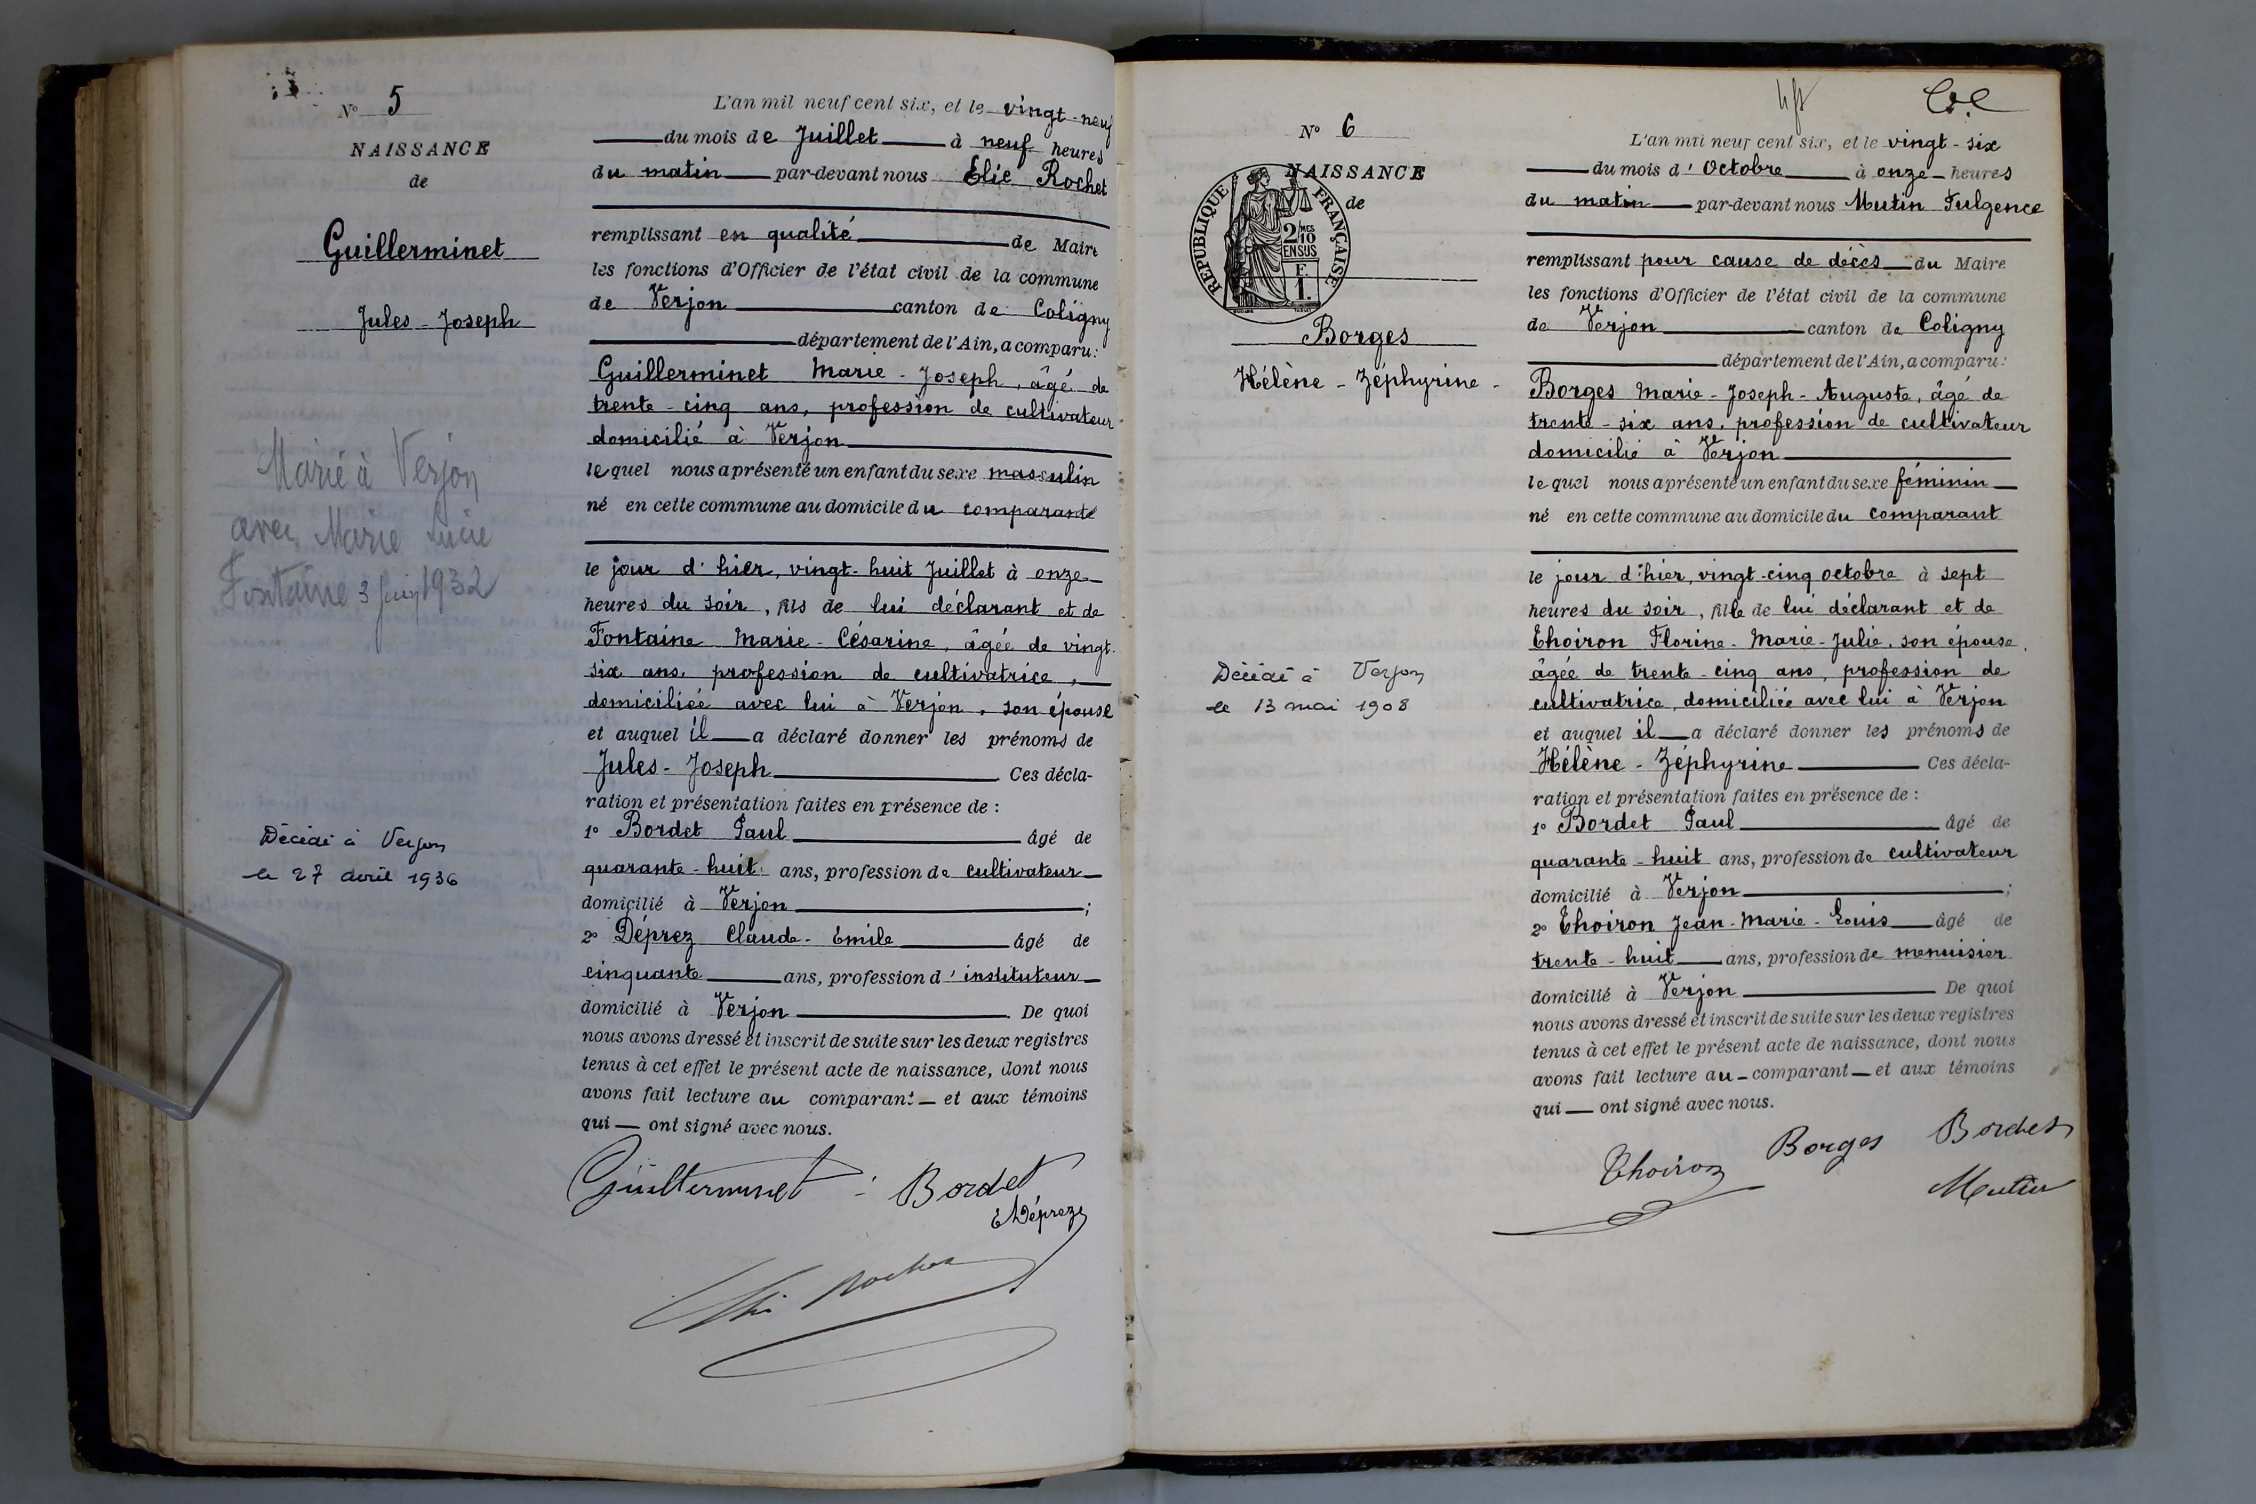 N° 5
NAISSANCE
de
Guillerminet
Jules - Joseph
Marié à Verjon
avec Marie Lucie
Fontaine 3 1932
Décédé à Verjon
le 27 avril 1936
L'an mil neuf cent six, et le vingt-neuf
du mois de Juillet à neuf heures
du matin par-devant nous Elie Rochet
remplissant en qualité de Maire
les fonctions d'Officier de l'état civil de la commune
de Verjon canton de Coligny
département de l'Ain, a comparu:
Guillerminet Marie - Joseph, âgé de
trente - cinq ans, profession de cultivateur
domicilié à Verjon
lequel nous a présenté un enfant du sexe masculin
né en cette commune au domicile du comparante
le jour d'hier, vingt-huit Juillet à onze
heures du soir, fils de lui déclarant et de
Fontaine Marie - Césarine, âgée de vingt-
six ans, profession de cultivatrice,
domiciliée avec lui à Verjon, son épouse
et auquel il a déclaré donner les prénoms de
Jules - Joseph Ces décla-
ration et présentation faites en présence de :
1° Bordet Paul âgé de
quarante - huit ans, profession de cultivateur
domicilié à Verjon ;
2° Déprez Claude - Emile âgé de
cinquante ans, profession d'instituteur
domicilié à Verjon De quoi
nous avons dressé et inscrit de suite sur les deux registres
tenus à cet effet le présent acte de naissance, dont nous
avons fait lecture au comparant et aux témoins
qui ont signé avec nous.
Guillerminet Bordet
E Déprez
Elie Rochet
N° 6
NAISSANCE
de
REPUBLIQUE FRANÇAISE
2/10MES
EN SUS
F.
1.
Borges
Hélène - Zéphyrine -
Décédé à Verjon
le 13 mai 1908
L'an mil neuf cent six, et le vingt - six
du mois d'Octobre à onze heures
du matin par-devant nous Mutin Fulgence
remplissant pour cause de décès du Maire
les fonctions d'Officier de l'état civil de la commune
de Verjon canton de Coligny
département de l'Ain, a comparu:
Borges Marie - Joseph - Auguste, âgé de
trente - six ans, profession de cultivateur
domicilié à Verjon
lequel nous a présenté un enfant du sexe féminin
né en cette commune au domicile du comparant
le jour d'hier, vingt-cinq octobre à sept
heures du soir, fille de lui déclarant et de
Thoiron Florine - Marie - Julie, son épouse,
âgée de trente - cinq ans, profession de
cultivatrice, domiciliée avec lui à Verjon
et auquel il a déclaré donner les prénoms de
Hélène - Zéphyrine Ces décla-
ration et présentation faites en présence de :
1° Bordet Paul âgé de
quarante - huit ans, profession de cultivateur
domicilié à Verjon ;
2° Thoiron Jean - Marie - Louis âgé de
trente - huit ans, profession de menuisier
domicilié à Verjon De quoi
nous avons dressé et inscrit de suite sur les deux registres
tenus à cet effet le présent acte de naissance, dont nous
avons fait lecture au comparant et aux témoins
qui ont signé avec nous.
Thoiron Borges Bordet
Mutin